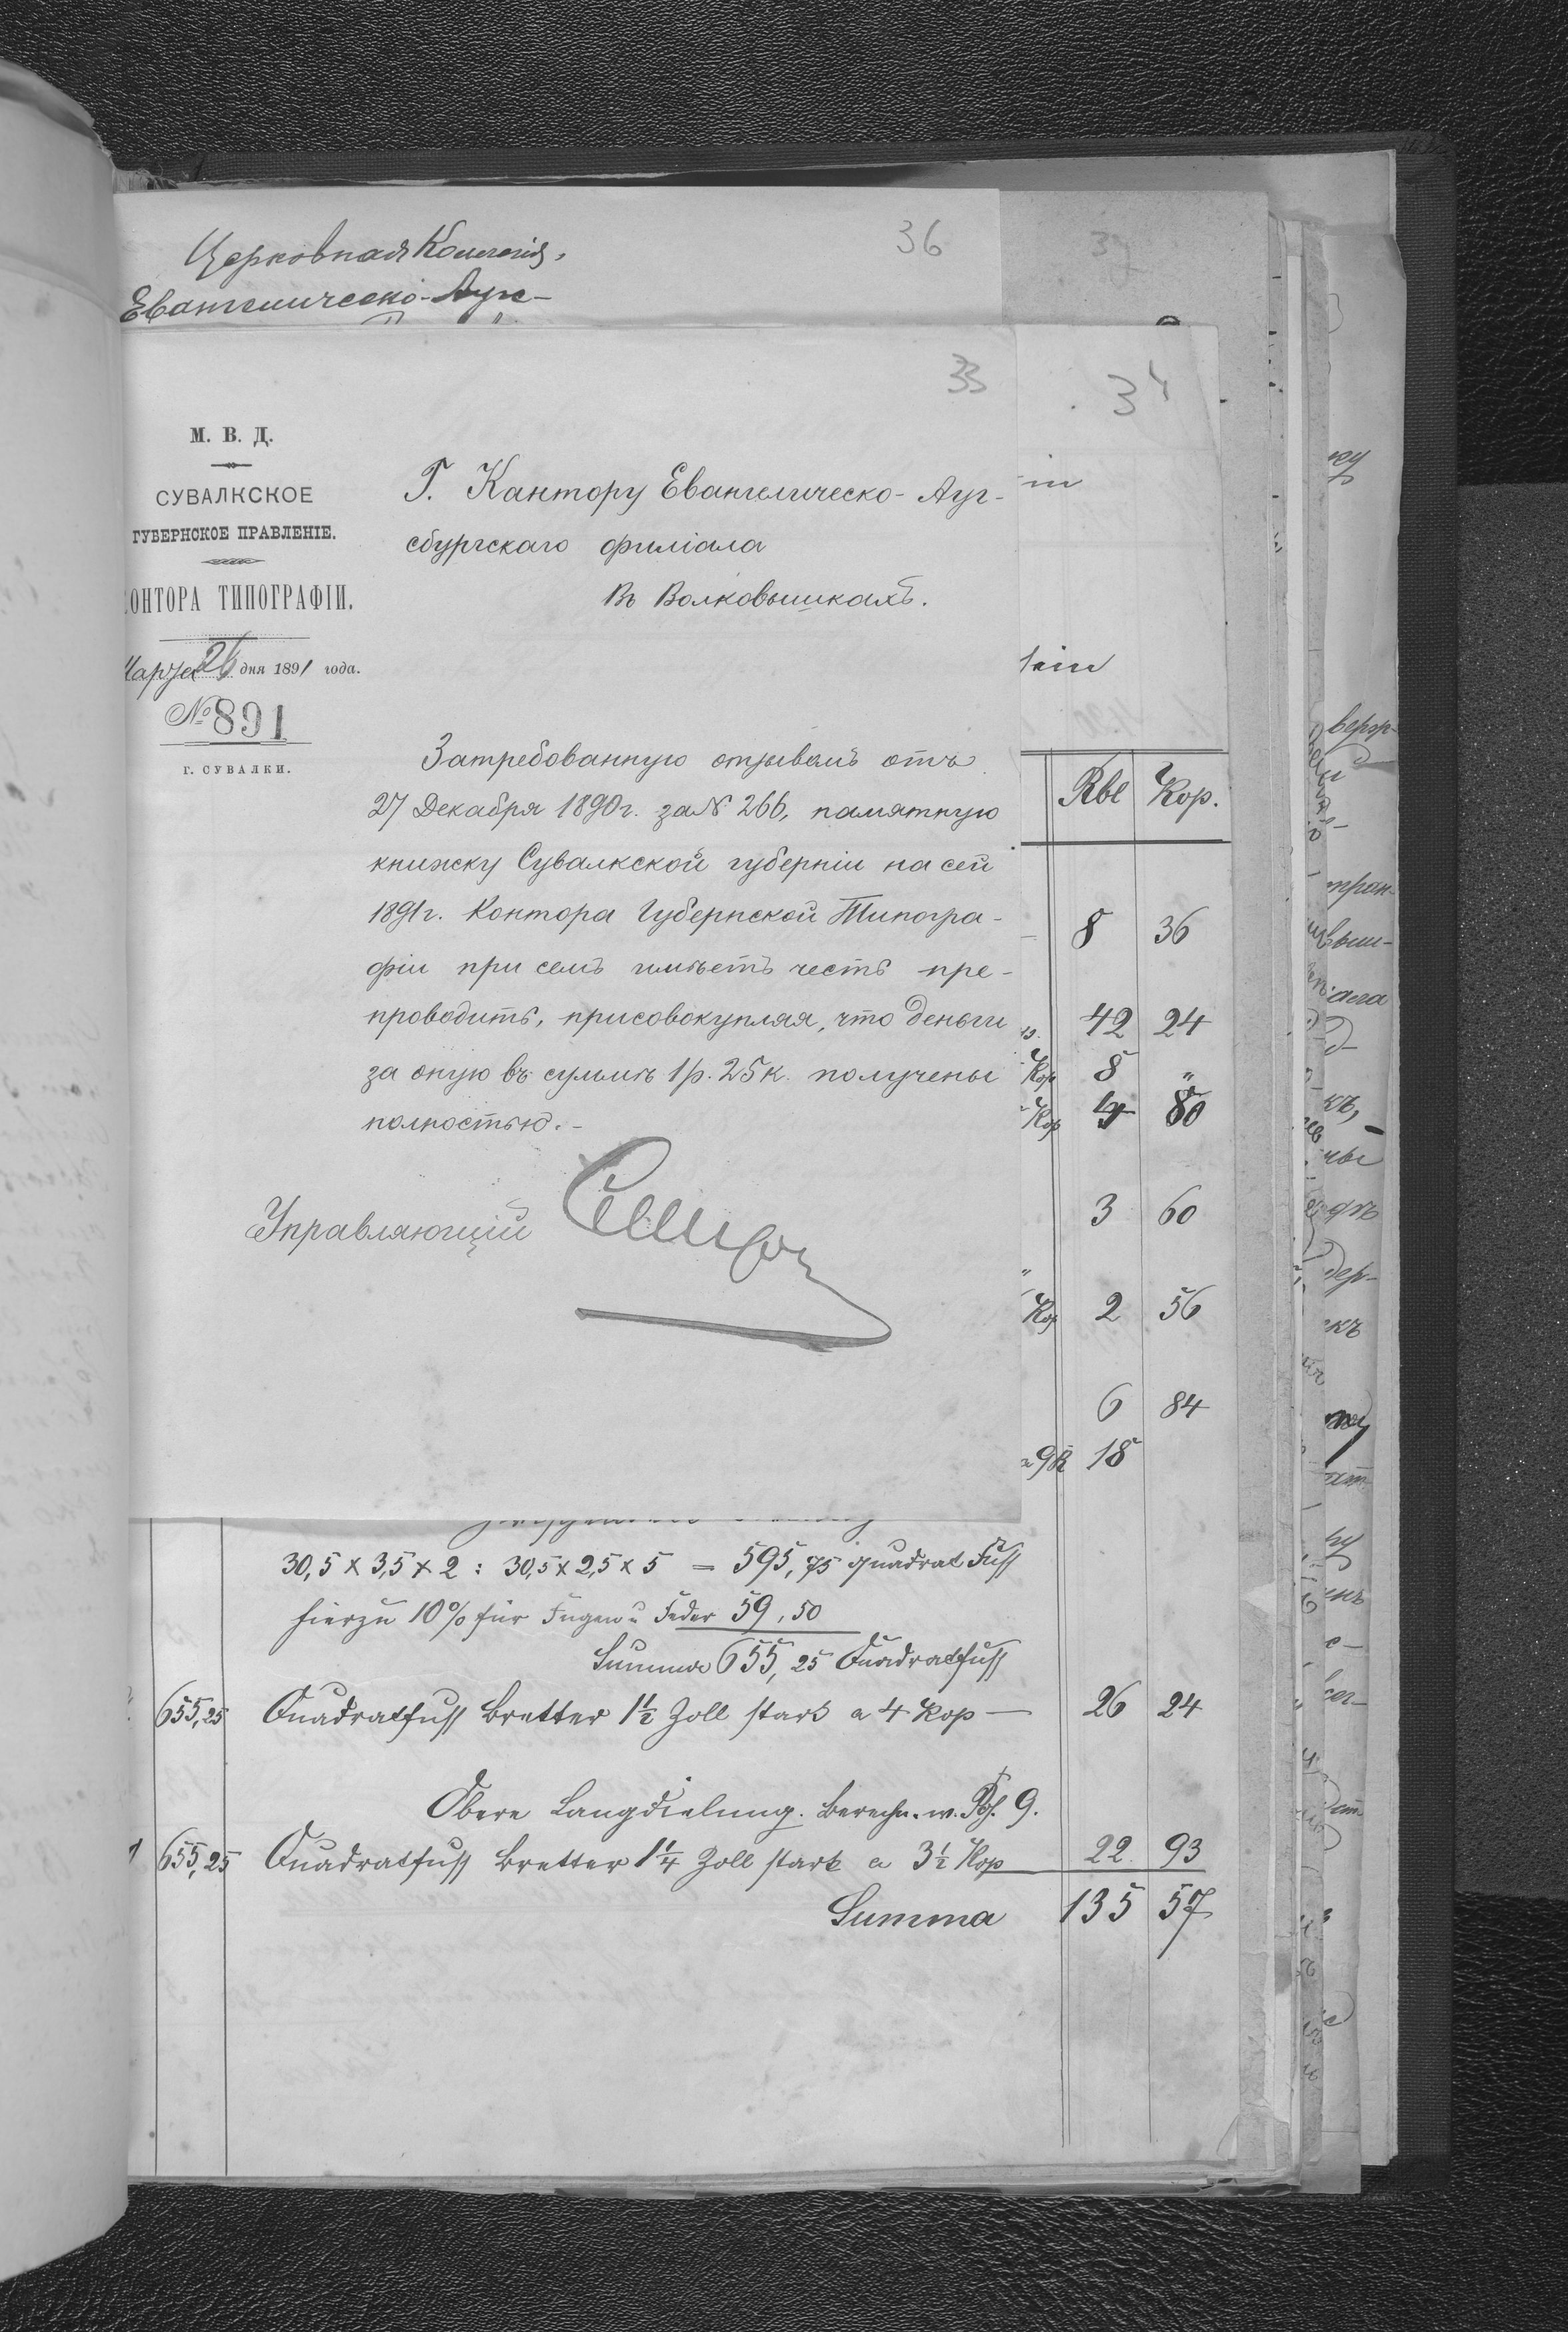 Церковная Коллегія,
Евангелическо-Аугс-
36
37
33
34
М. В. Д.
СУВАЛКСКОЕ
ГУБЕРНСКОЕ ПРАВЛЕНІЕ.
КОНТОРА ТИПОГРАФІИ.
Марта 26 дня 1891 года.
№ 891
г. СУВАЛКИ.
Г. Кантору Евангелическо-Ауг-
сбургскаго филіала
въ Волковышкахъ.
Затребованную отзывомъ отъ
27 Декабря 1890 г. за № 266, памятную
книжку Сувалкской губерніи на сей
1891 г. Контора Губернской Типогра-
фіи при семъ имѣетъ честь пре-
проводить, присовокупляя, что деньги
за оную въ суммѣ 1 р. 25 к. получены
полностью.-
Управляющій
Rbl Kop.
8 36
42 24
Kop 8 "
Kop 4 80
3 60
Kop 2 56
6 84
18
30,5 x 3,5 x 2 : 30,5 x 2,5 x 5 = 595,75 quadrat Fuß
hierzu 10% für Fugen u Feder 59,50
Summa 655,25 Quadratfuß
655,25 Quadratfuß Bretter 1½ Zoll stark a 4 Kop — 26 24
Obere Langdielung. Berechn. w. Pos. 9.
655,25 Quadratfuß Bretter 1¼ Zoll stark a 3½ Kop 22 93
Summa 135 57